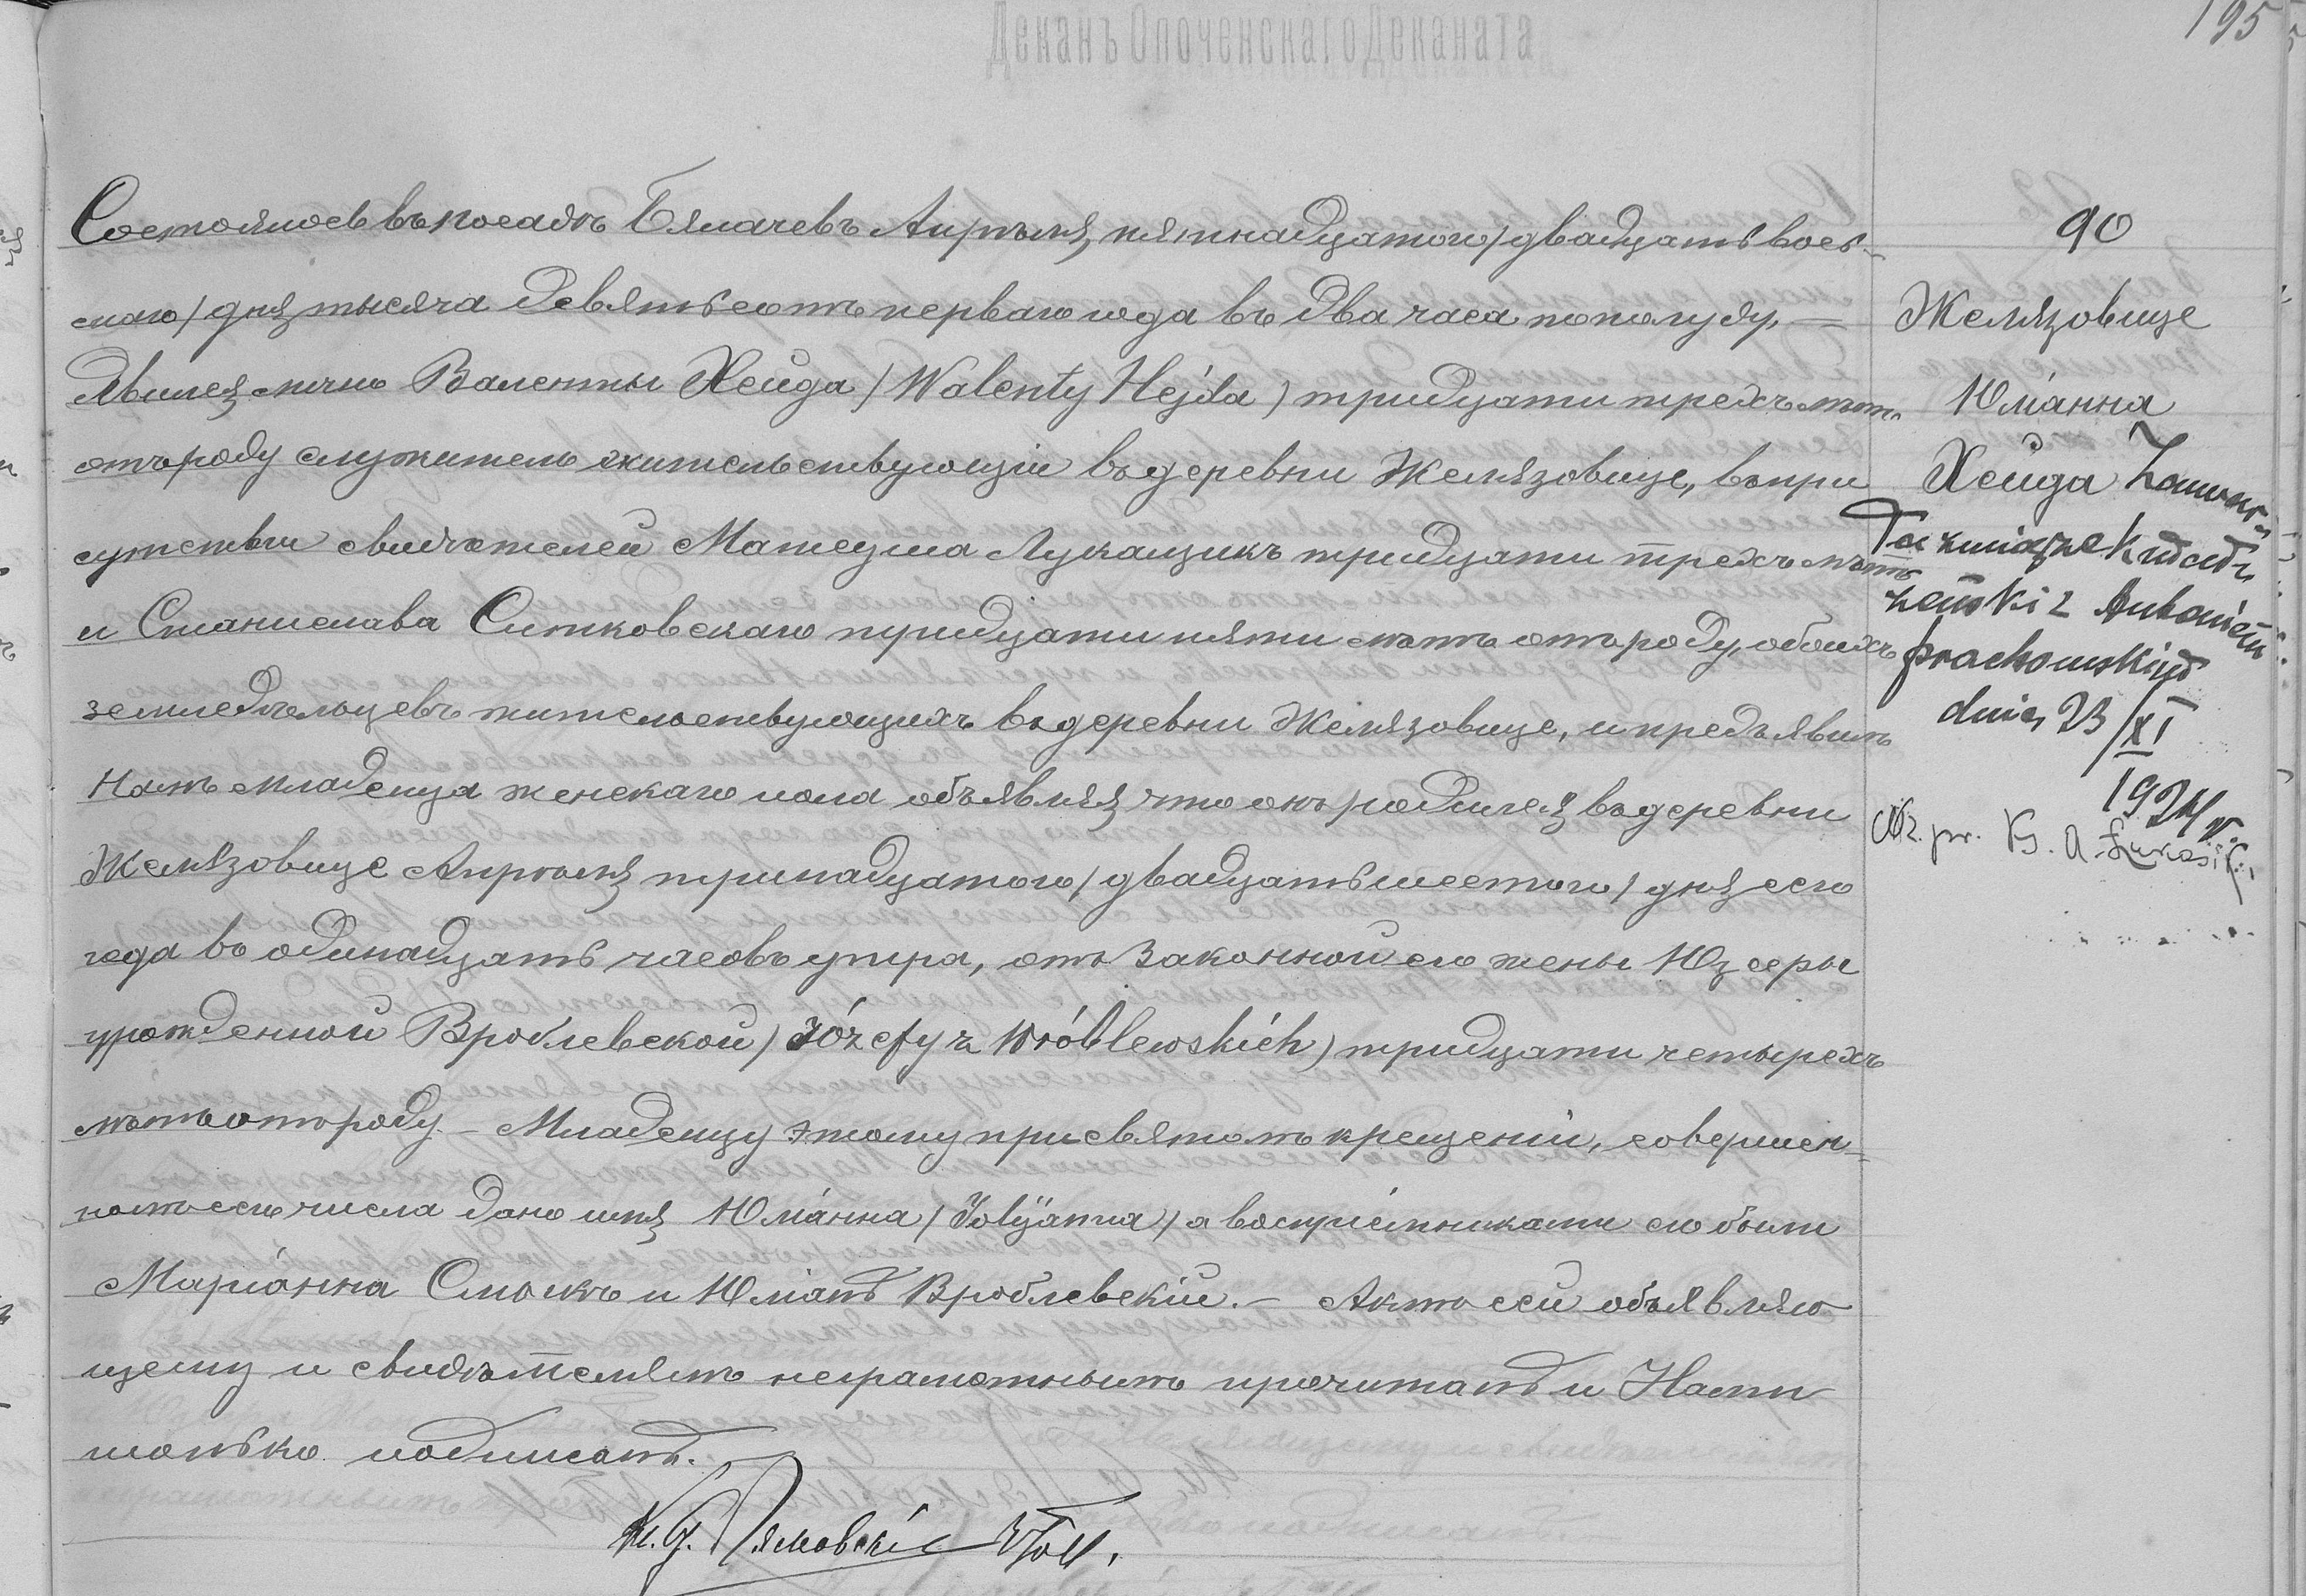 Деканъ Опоченскаго Деканата
195
Состоялось въ посадѣ Бялачевъ Апрѣля, пятнадцатого /двадцать вось-
маго/ дня тысяча девятьсотъ перваго года въ два часа пополудн. —
Явился лично Валенты Хейда /Walenty Hejda/ тридцати трехъ лѣтъ
отъ роду служитель жительствующій въ деревни Желязовице, въ при
сутствіи свидѣтелей Матеуша Лукащикъ тридцати трехъ лѣтъ
и Станислава Ситковскаго тридцати пяти лѣтъ отъ роду, обоихъ
земледѣльцевъ жительствующихъ въ деревни Желязовице, и предъявилъ
Намъ младенца женскаго пола объявляя что онъ родился въ деревни
Желязовице Апрѣля тринадцатого /двадцать шестого/ дня сего
года въ одинадцать часовъ утра, отъ законной его жены Юзефы
урожденной Вроблевской /Józefy z Wróblewskich/ тридцати четырехъ
лѣтъ отъ роду. — Младенцу этому при святомъ крещеніи, совершен-
номъ сего числа дано имя Юліанна /Julijanna/ а воспріемниками его были
Маріанна Смыкъ и Юліанъ Вроблевскій. — Актъ сей объявляю
щему и свидѣтелямъ неграмотнымъ прочитанъ и Нами
только подписанъ.
90
Желязовице
Юліанна
Хейда Zawar-
ła związek małż
żeński z Antonim
Prochowskim
dnia 23/XI
1924 r.